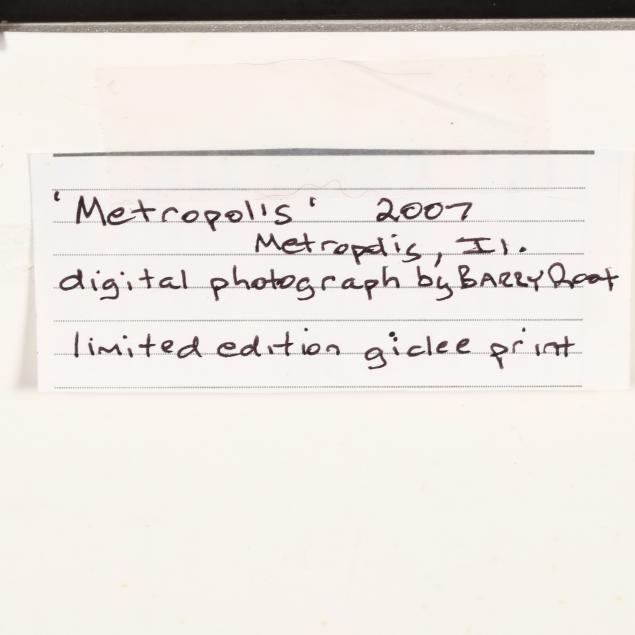 'Metropolis' 2007
Metropolis, Il.
digital photograph by BARRY Root
limited edition giclee print